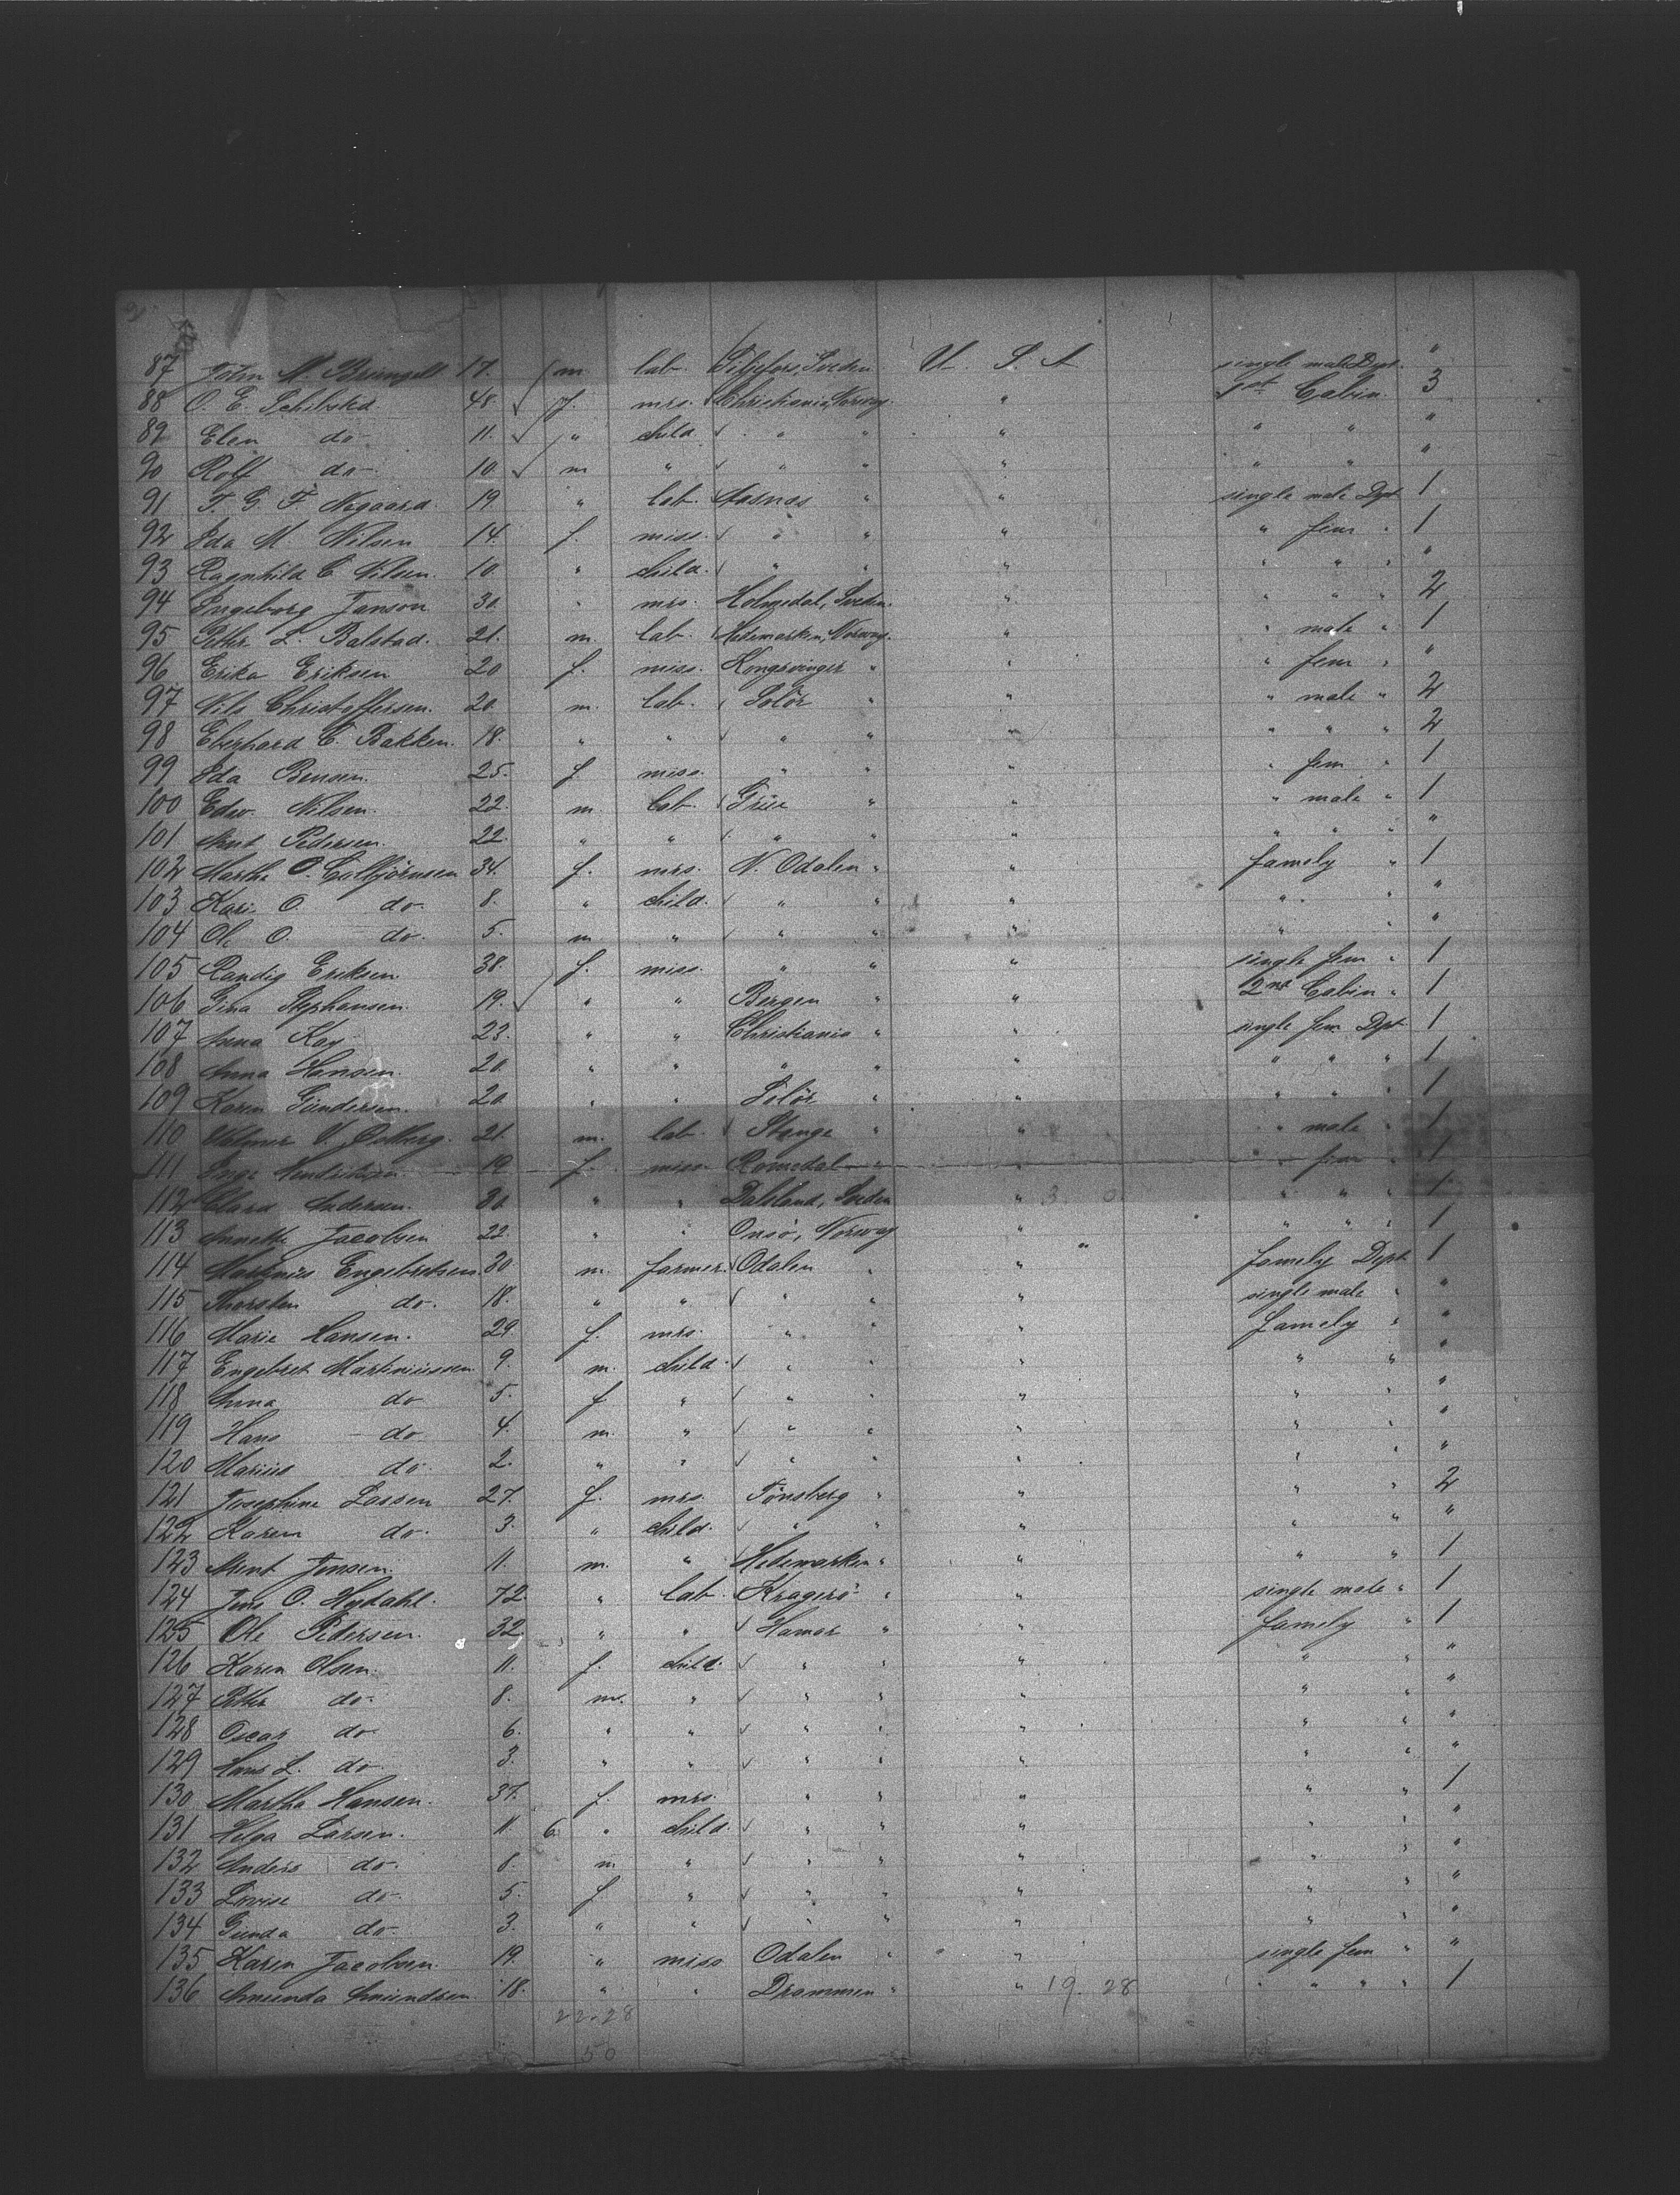 87 John M. 17. m lab. Sweden U. S. A single male Dept. "
88 O. E. Schibsted 48 f. mrs. Christiania, Norway. " 1st Cabin. 3
89 Elen do 11. " child " " " " " "
90 Rolf do 10. m " " " " " " "
91 T. G. F. Nygaard. 19 " lab. Aasnes " " single male Dpt 1
92 Ida M. Nilsen 14. f. miss. " " " " fem " 1
93 Ragnhild C. Nilsen. 10. " child. " " " " " " "
94 Ingeborg Janson 30. " mrs. Holmedal, Sweden. " " " " 2
95 Pether L. Balstad. 21. m. lab. Hedemarken, Norway. " " male " 1
96 Erika Eriksen 20 f. miss. Kongsvinger " " " fem " "
97 Nils Christoffersen. 20. m. lab. Solör " " " male " 2
98 Eberhard C. Bakken. 18. " " " " " " " " 2
99 Ida Bensen. 25. f miss. " " " " fem " 1
100 Edw. Nilsen. 22. m. lab. Grue " " " male " 1
101 Pedersen. 22. " " " " " " " " "
102 Martha O. 34. f. mrs. N. Odalen " " family " 1
103 Kari O. do. 8. " child. " " " " " "
104 Ole O. do. 5. m " " " " " " "
105 Randig Eriksen. 38. f. miss. " " " single fem " 1
106 Gina Stephansen. 19. " " Bergen " " 2nd Cabin " 1
107 Anna Kay 23. " " Christiania " " single fem Dpt 1
108 Anna Hansen. 20. " " " " " " " " 1
109 Karen Gundersen. 20 " " Solör " " " " " 1
110 V. 21. m. lab. Stange " " " male " 1
111 Inga 19 f. miss. Romedal " " " fem " 1
112 Clara Andersen. 30. " " Dalsland, Sweden " 3 0 " " " 1
113 Annette Jacobsen 22. " " Onsö, Norway " " " " 1
114 Martinius Engebretsen. 30 m. farmer. Odalen " " famely Dept 1
115 Thorsten do. 18. " " " " " single male " "
116 Marie Hansen. 29. f. mrs. " " " famely " "
117 Engebret Martiniussen 9. m. child. " " " " " "
118 Anna do 5. f " " " " " " "
119 Hans do 4. m. " " " " " " "
120 Marius do. 2. " " " " " " " "
121 Josephine Larsen 27. f. mrs. Tönsberg " " " " 2
122 Karen do. 3. " child. " " " " " "
123 Arent Jensen. 11. m. " Hedemarken " " " " 1
124 Jens O. Hydahl. 72 " lab. Kragerö " " single male " 1
125 Ole Pedersen. 32. " " Hamar " " famely " 1
126 Karen Olsen. 11. f. child. " " " " " "
127 Pether do. 8. m. " " " " " " "
128 Oscar do. 6. " " " " " " " "
129 Hans L. do. 3. " " " " " " " "
130 Martha Hansen. 37. f. mrs. " " " " " 1
131 Helga Larsen. 11. 6 " child. " " " " " "
132 Anders do. 8. m " " " " " " "
133 Lovise do. 5. f " " " " " " "
134 Gunda do. 3. " " " " " " " "
135 Karen Jacobsen. 19. " miss Odalen " " single fem " "
136 Amunda Amundsen 18. " " Drammen " " 19. 28 " " " 1
22.28
50